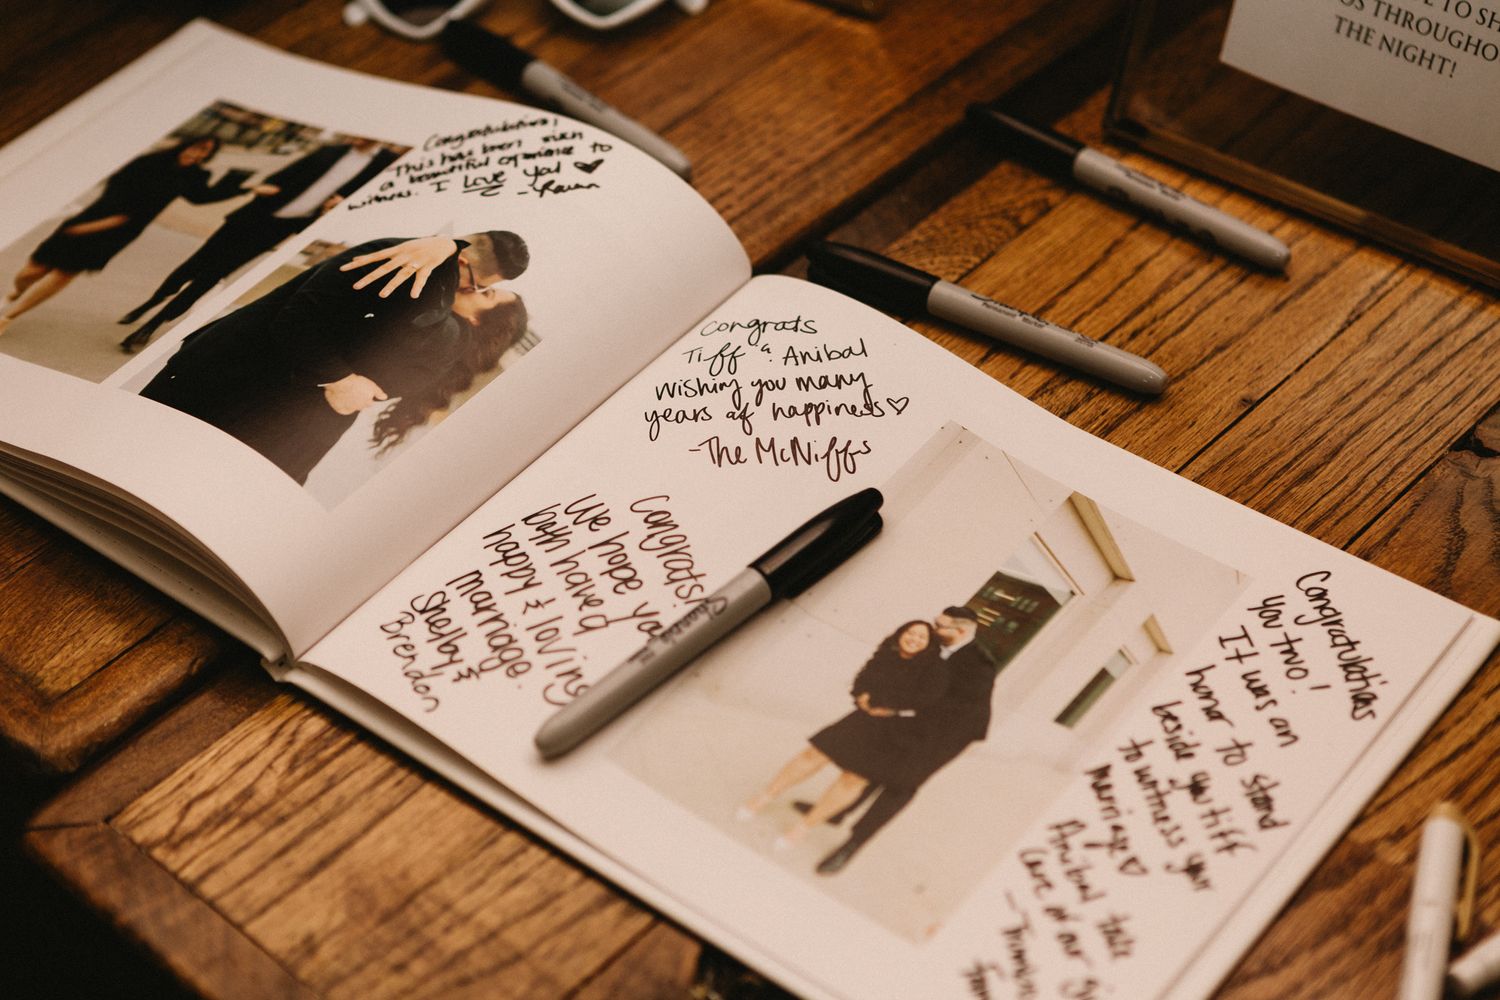 Congratulations!
This has been such
a beautiful experience to
witness. I Love You! ♡
congrats
Tiff & Anibal
Wishing you many
years of happiness ♡
-The McNiffs
Congrats!
We hope you
both have a
happy & loving
marriage.
Shelby &
Brendon
Congratulations
you two!
It was an
honor to stand
beside you tiff
to witness your
marriage ♡
Anibal take
Care of our
TO SH
OS THROUGHO
THE NIGHT!
Sharpie